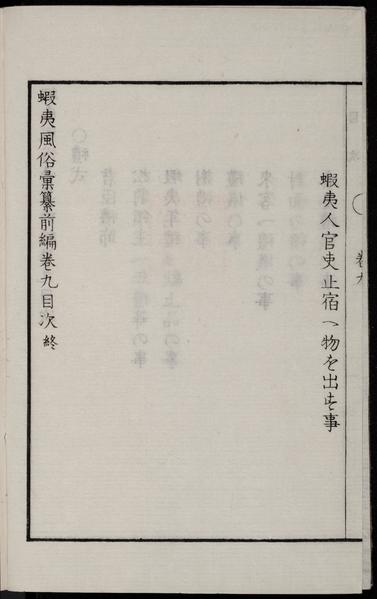 蝦夷人官吏止宿へ物を出す事
蝦夷風俗彙纂前編巻九目次終